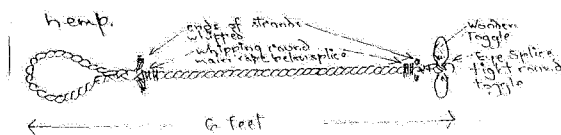 hemp.
ends of strands
whipped
whipping round
main rope below splice
Wooden
Toggle
Eye Splice
tight round
toggle
6 feet